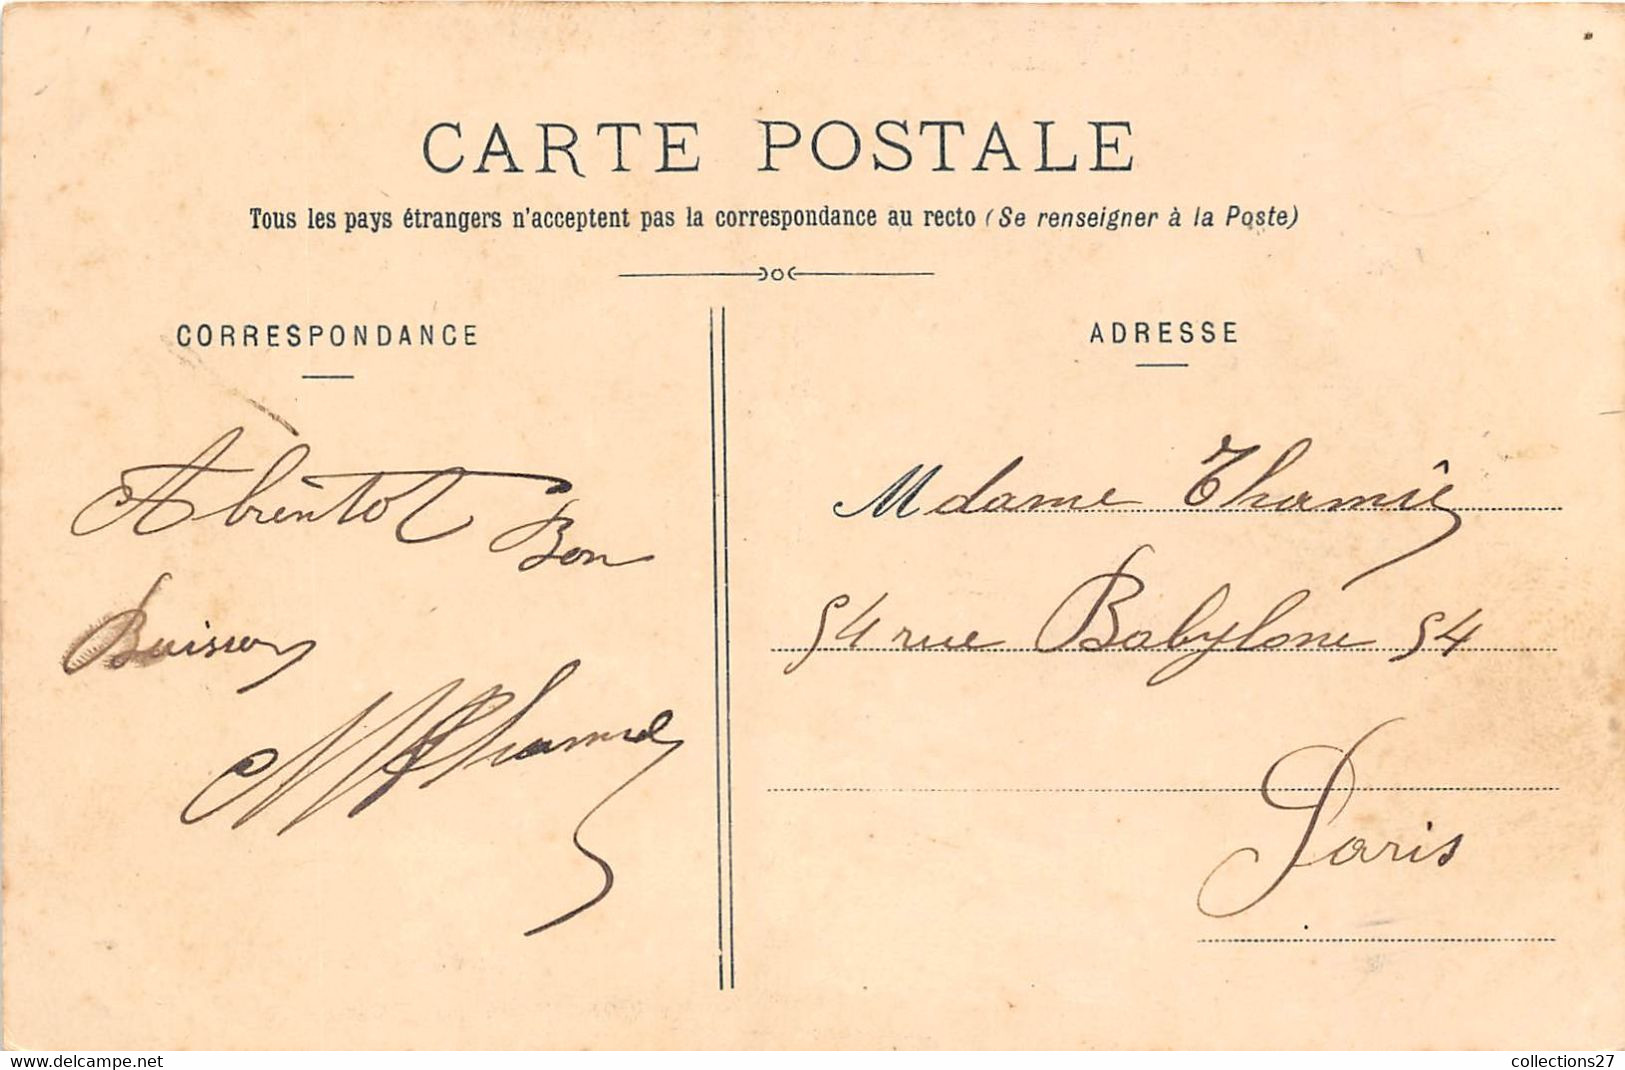 CARTE POSTALE
Tous les pays étrangers n'acceptent pas la correspondance au recto (Se renseigner à la Poste)
CORRESPONDANCE
ADRESSE
A brêntot Bon
Baisser
Mdame Thamié
54 rue Babylone 54
Paris
www.delcampe.net
collections27